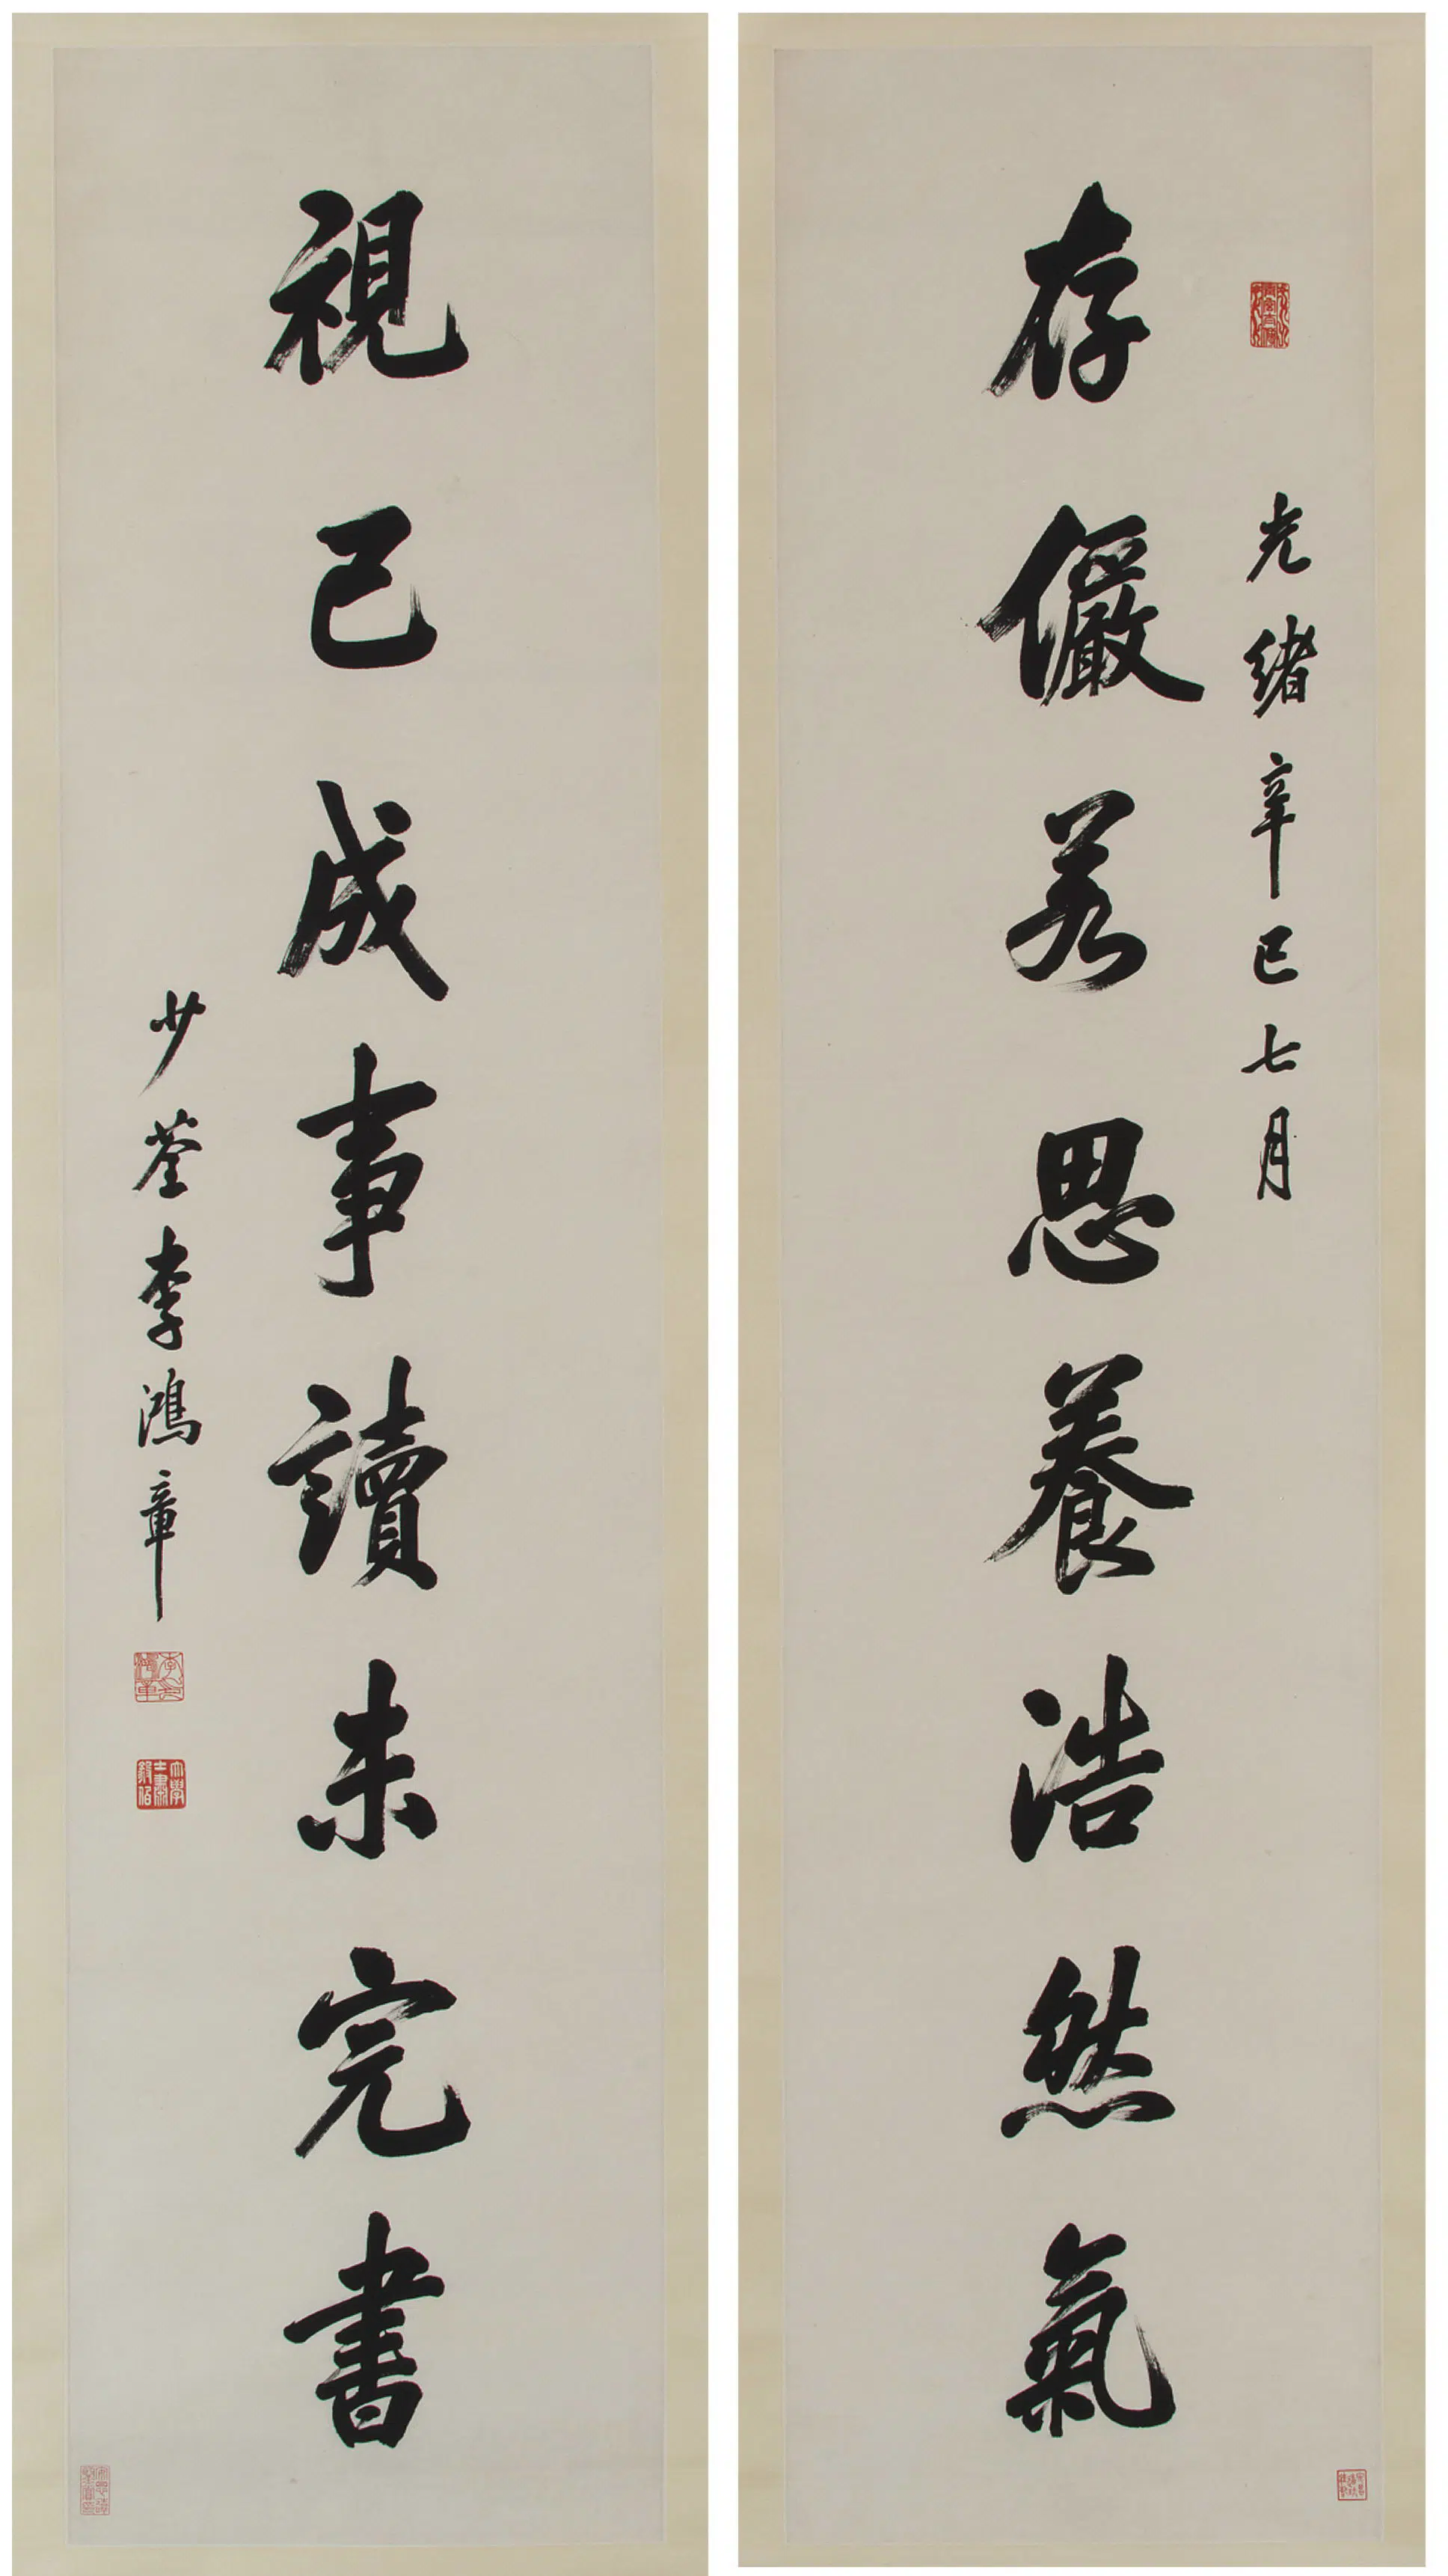 光緒辛巳七月
存儼若思養浩然氣
視已成事讀未完書
少荃李鴻章
大學士肅毅伯